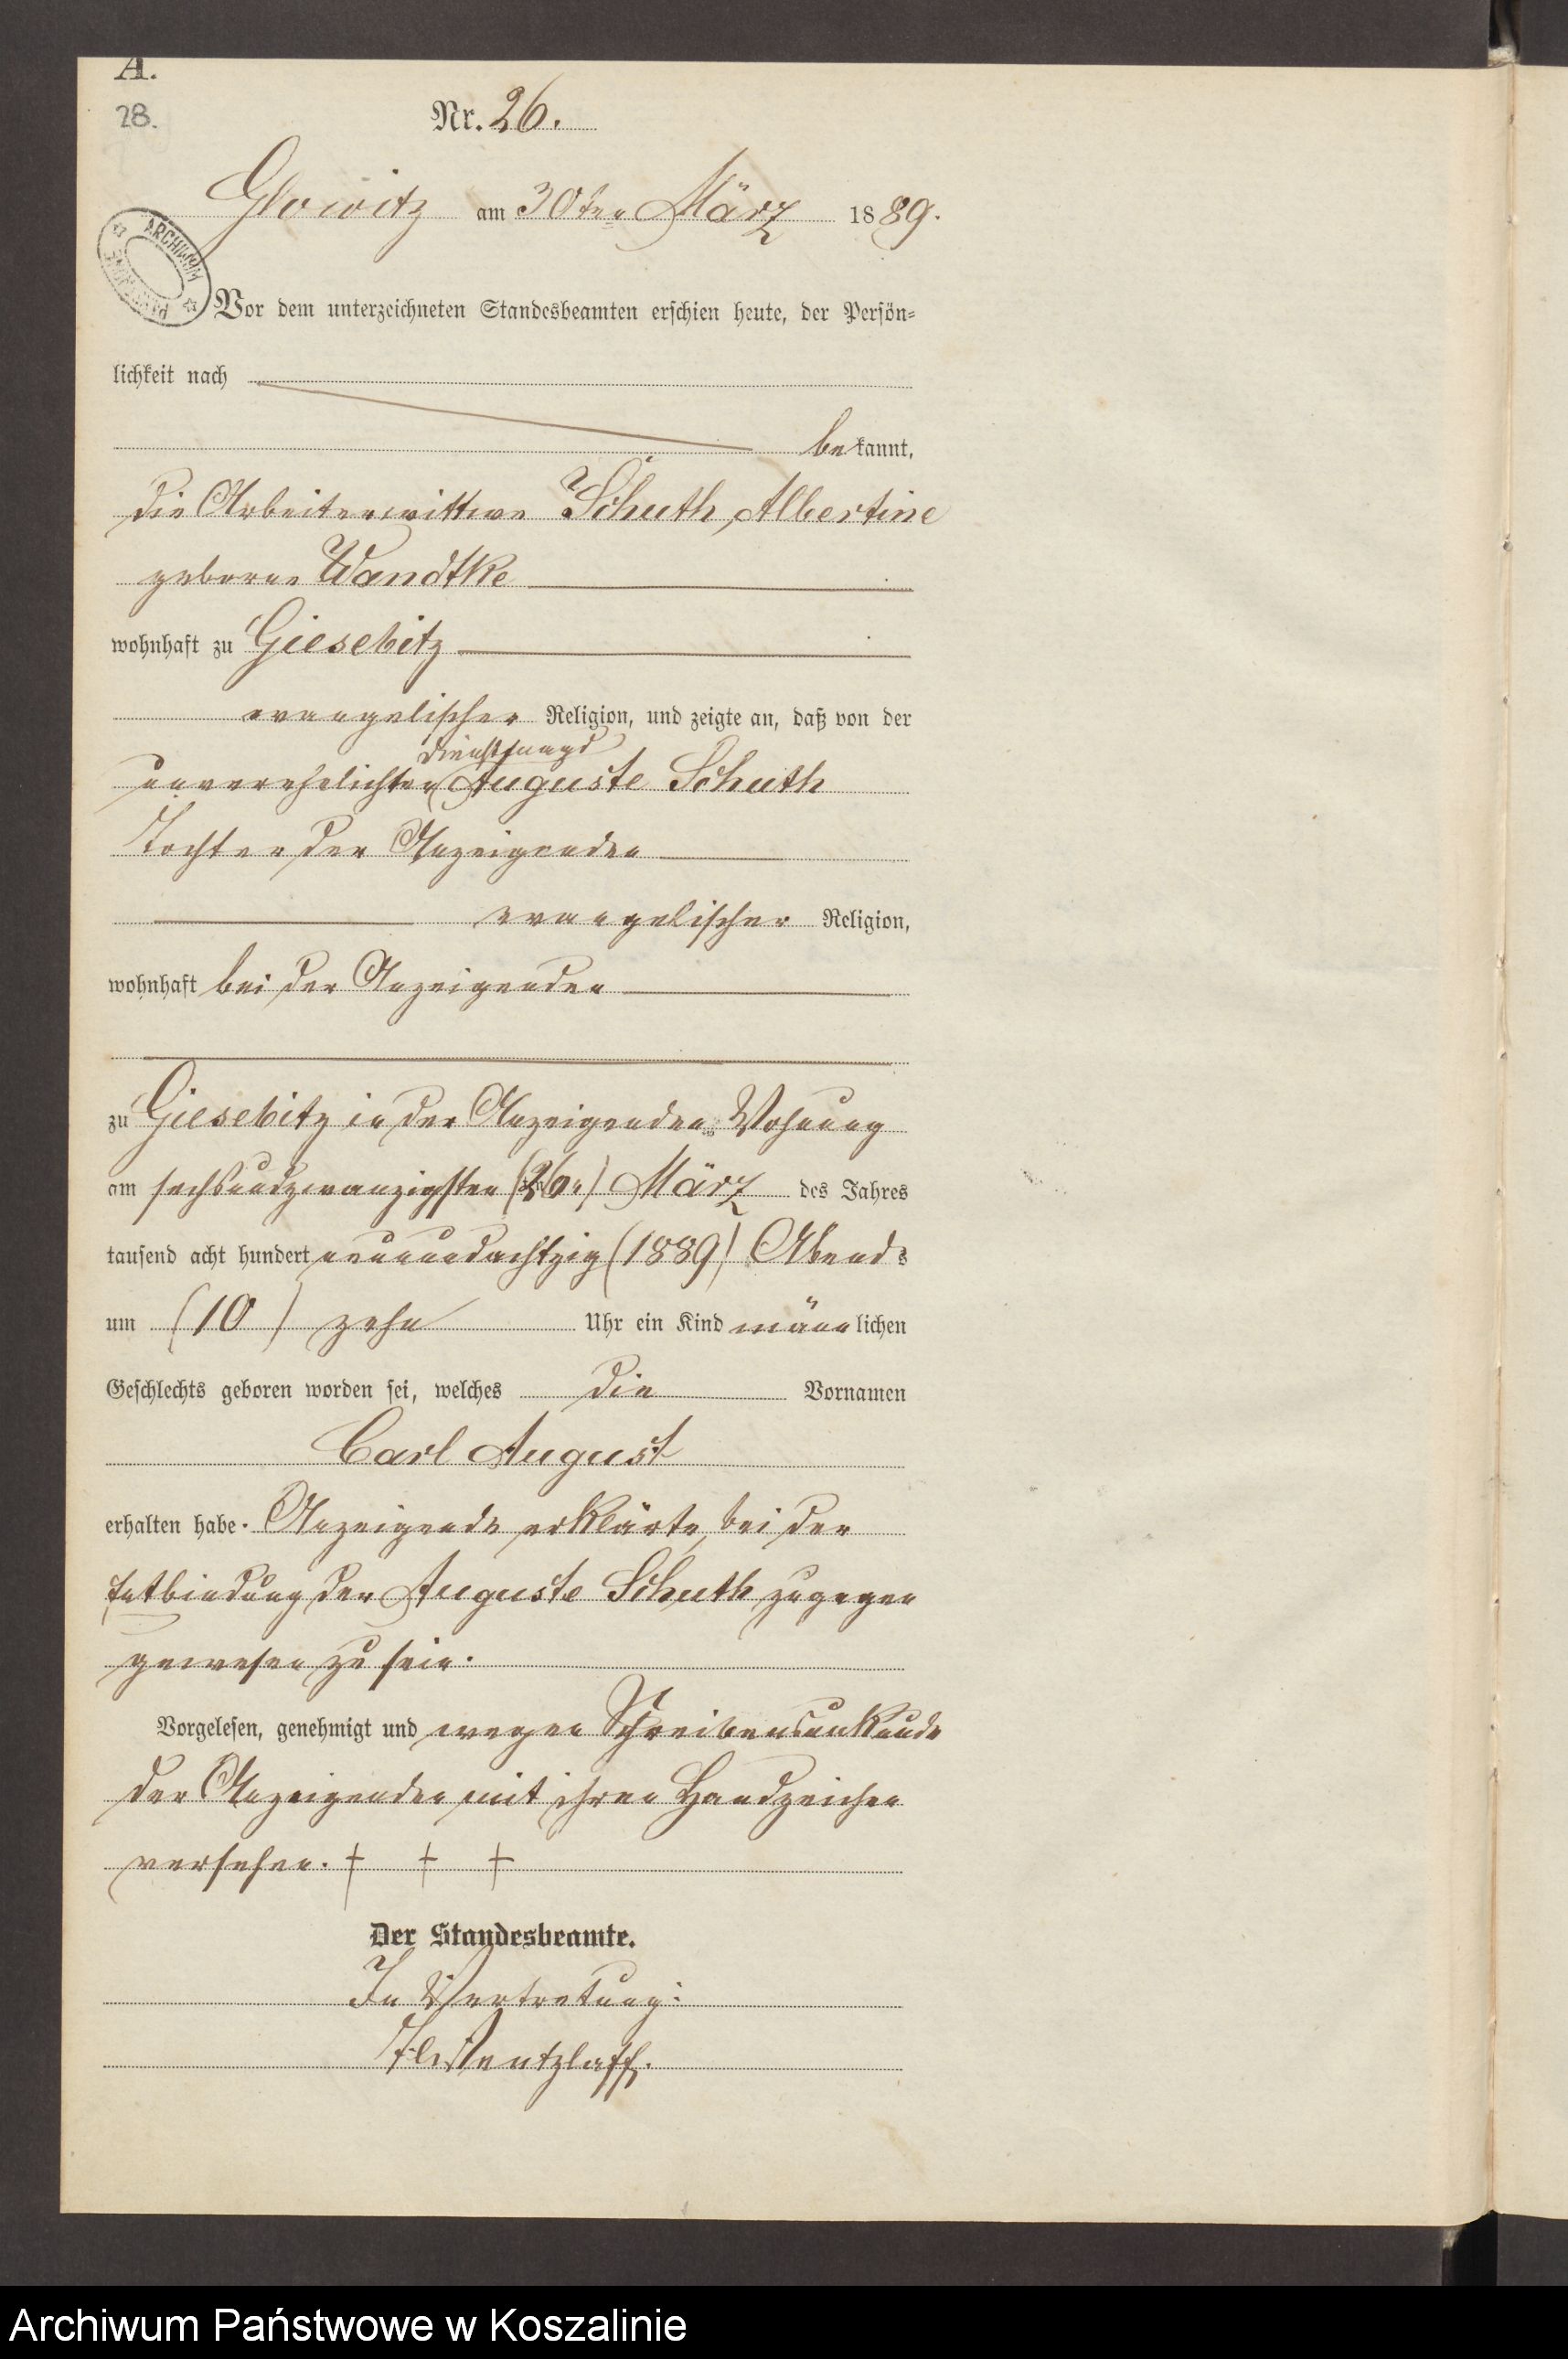 A.
28.
Nr. 26.
Glowitz am 30ten März 1889.
ARCHIWUM PAŃSTWOWE
Vor dem unterzeichneten Standesbeamten erschien heute, der Persön=
lichkeit nach
bekannt,
die Arbeiterwittwe Schuth, Albertine
geborne Wandtke
wohnhaft zu Giesebitz
evangelischer Religion, und zeigte an, daß von der
Dienstmagd
unverehelichten Auguste Schuth
Tochter der Anzeigenden
evangelischer Religion,
wohnhaft bei der Anzeigenden
zu Giesebitz in der Anzeigenden Wohnung
am sechsundzwanzigsten (26n) März des Jahres
tausend acht hundert neunundachtzig (1889) Abends
um (10) zehn Uhr ein Kind männlichen
Geschlechts geboren worden sei, welches die Vornamen
Carl August
erhalten habe. Anzeigende erklärte, bei der
Entbindung der Auguste Schuth zugegen
gewesen zu sein.
Vorgelesen, genehmigt und wegen Schreibensunkunde
der Anzeigenden mit ihren Handzeichen
versehen. † † †
Der Standesbeamte.
In Vertretung:
Wentzlaff.
Archiwum Państwowe w Koszalinie